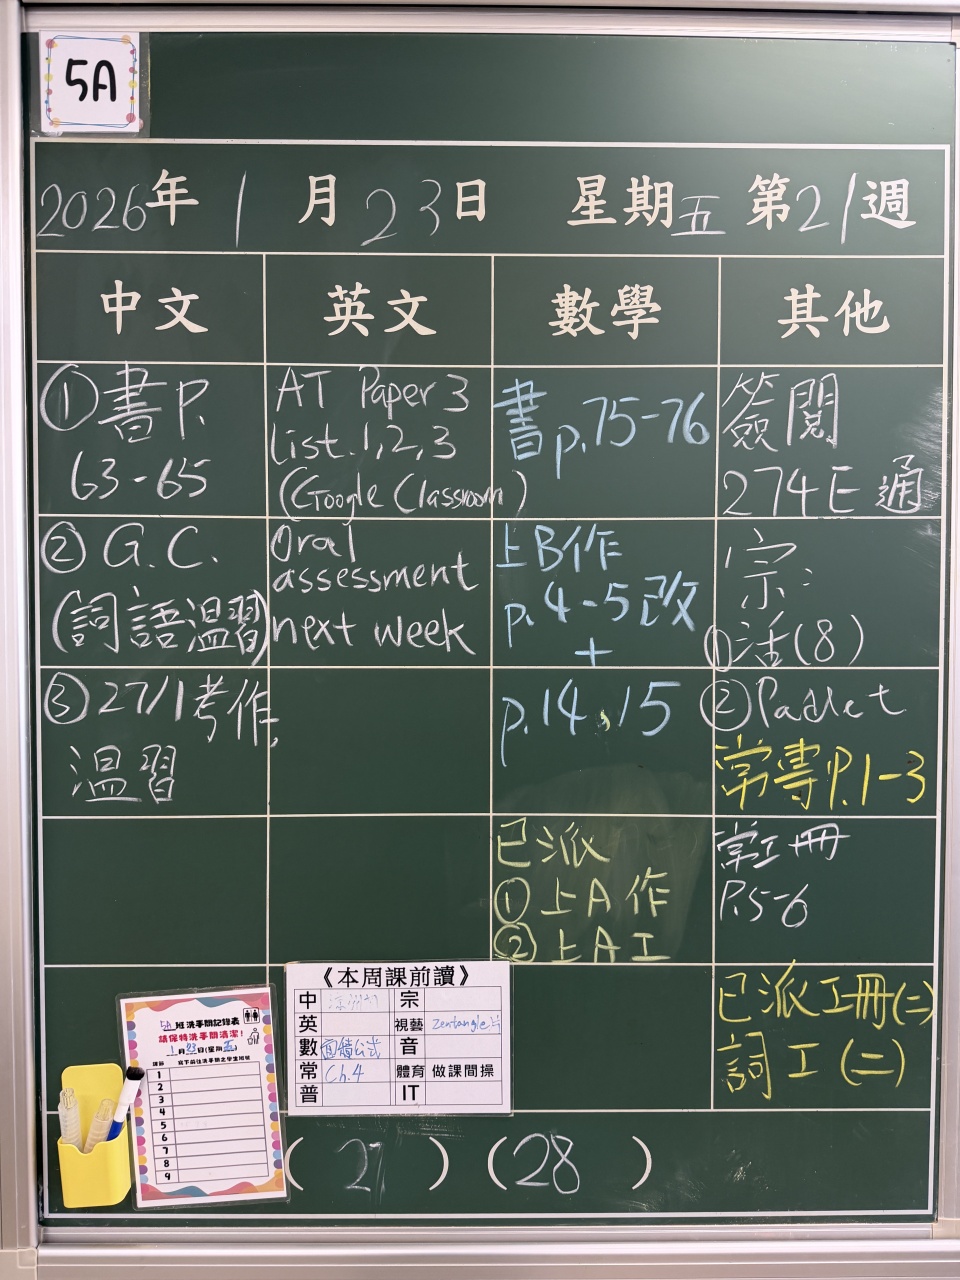 5A
2026年 1月 23日 星期五 第21週
中文 英文 數學 其他
①書P.
63-65
②G.C.
(詞語溫習)
③27/1考作,
溫習
AT Paper 3
list.1,2,3
(Google Classroom)
Oral
assessment
next week
書p.75-76
上B作
p.4-5改
+
p.14,15
已派
①上A作
②上A工
簽閱
274E通
宗:
①活(8)
②Padlet
常專P.1-3
常工冊
P.5-6
已派工冊(二)
詞工(二)
《本周課前讀》
中 宗
英 視藝 Zentangle
數 面積公式 音
常 Ch.4 體育 做課間操
普 IT
5A 班洗手間記錄表
請保持洗手間清潔！
1月23日(星期五)
1
2
3
4
5
6
7
8
9
(27) (28)